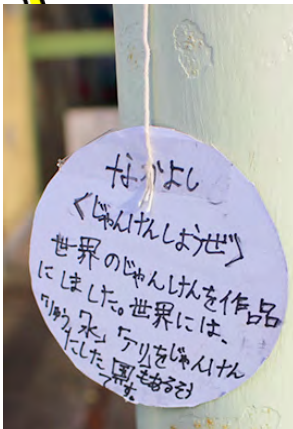 なかよし
《じゃんけんしようぜ》
世界のじゃんけんを作品
にしました。世界には、
水
をじゃんけん
にした国もあるそう
です。